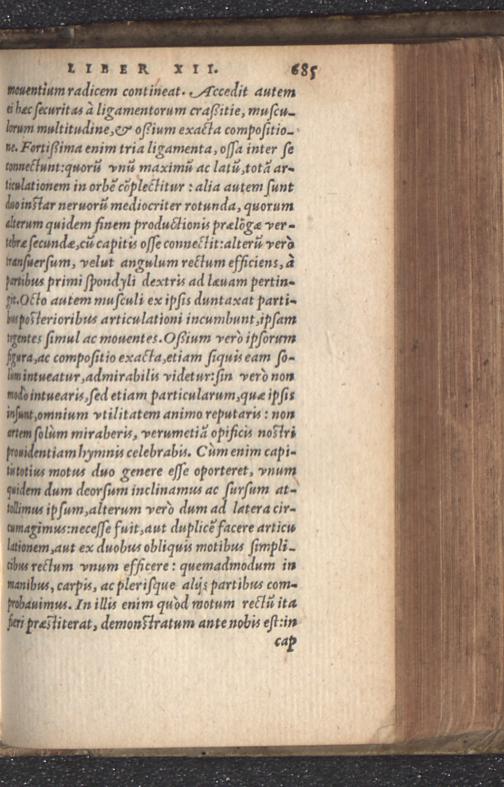 LIBER XII. 685
mouentium radicem contineat. Accedit autem
ei hæc securitas à ligamentorum craßitie, muscu-
lorum multitudine, & oßium exacta compositio-
ne. Fortißima enim tria ligamenta, ossa inter se
connectunt: quorũ vnũ maximũ ac latũ, totã ar-
ticulationem in orbẽ cõplectitur: alia autem sunt
duo instar neruorũ mediocriter rotunda, quorum
alterum quidem finem productionis prælõgæ ver-
tebræ secundæ, cũ capitis osse connectit: alterũ verò
transuersum, velut angulum rectum efficiens, à
partibus primi spondyli dextris ad læuam pertin-
git. Octo autem musculi ex ipsis duntaxat parti-
bus posterioribus articulationi incumbunt, ipsam
tegentes simul ac mouentes. Oßium verò ipsorum
figura, ac compositio exacta, etiam siquis eam so-
lùm intueatur, admirabilis videtur: sin verò non
modò intuearis, sed etiam particularum, quæ ipsis
insunt, omnium vtilitatem animo reputaris: non
artem solùm miraberis, verumetiã opificis nostri
prouidentiam hymnis celebrabis. Cùm enim capi-
tis totius motus duo genere esse oporteret, vnum
quidem dum deorsum inclinamus ac sursum at-
tollimus ipsum, alterum verò dum ad latera cir-
cumagimus: necesse fuit, aut duplicẽ facere articu
lationem, aut ex duobus obliquis motibus simpli-
cibus rectum vnum efficere: quemadmodum in
manibus, carpis, ac plerisque alijs partibus com-
probauimus. In illis enim quòd motum rectũ ita
fieri præstiterat, demonstratum ante nobis est: in
cap